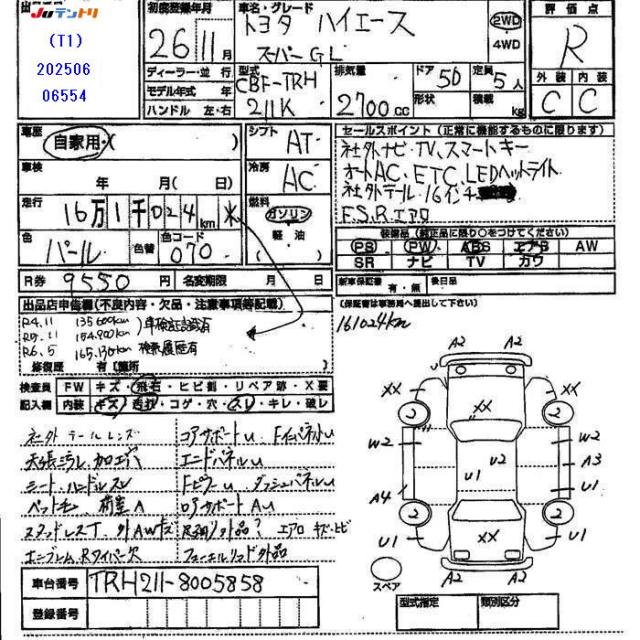 出品店 JUテントリ
(T1)
202506
06554
初度登録年月
26年 11月
ディーラー・並行
モデル年式 年
ハンドル 左・右
車名・グレード
トヨタ ハイエース
スーパーGL
2WD
4WD
型式 CBF-TRH
211K
排気量
2700 CC
ドア 5D
形状
定員 5人
積載 kg
評価点
R
外装 内装
C C
車歴
自家用・( )
車検
年 月( 日)
走行
16万1千024km
色 パール 色替 色コード 070
シフト AT
冷房 AC
燃料
ガソリン
軽・油
セールスポイント (正常に機能するものに限ります)
社外ナビ・TV、スマートキー
オートAC、ETC、LEDヘットライト
社外テール・16インチ
F.S.Rエアロ
装備品 (純正品に限り○をつけてください)
PS PW ABS エアB AW
SR ナビ TV カワ
R券 9550円 名変期限 月 日
新車保証書 有・無 後日品
(保証書は事務局へ提出して下さい)
出品店申告欄(不良内容・欠品・注意事項等記載)
R4.11 135600km
R5.11 154900km 車検証記載有
R6.5 165130km 検索履歴有
161024km
修復歴 有【箇所
検査員 FW キズ・飛石・ヒビ割・リペア跡・X要
記入欄 内装 キズ・ コゲ・穴・スレ・キレ・破レ
社外テールレンズ コアサポートU Fインパネル小U
天張ミラレ.加工穴 エンドパネルU
シート.ハンドルスレ FピラーU ダッシュパネルU
ペットチン 荷室A ロアサポートAU
スタッドレスT 外AWキズ 足廻リ外品? エアロ キズ・ヒビ
エンブレム.Rワイパー欠 フューエルリッド外品
車台番号 TRH211-8005858
登録番号
A2 A2
XX XX
2 XX 2
W2 U2 W2
U1 A3
A4 U1
2 2
U1 XX U1
スペア A2 A2
型式指定 類別区分